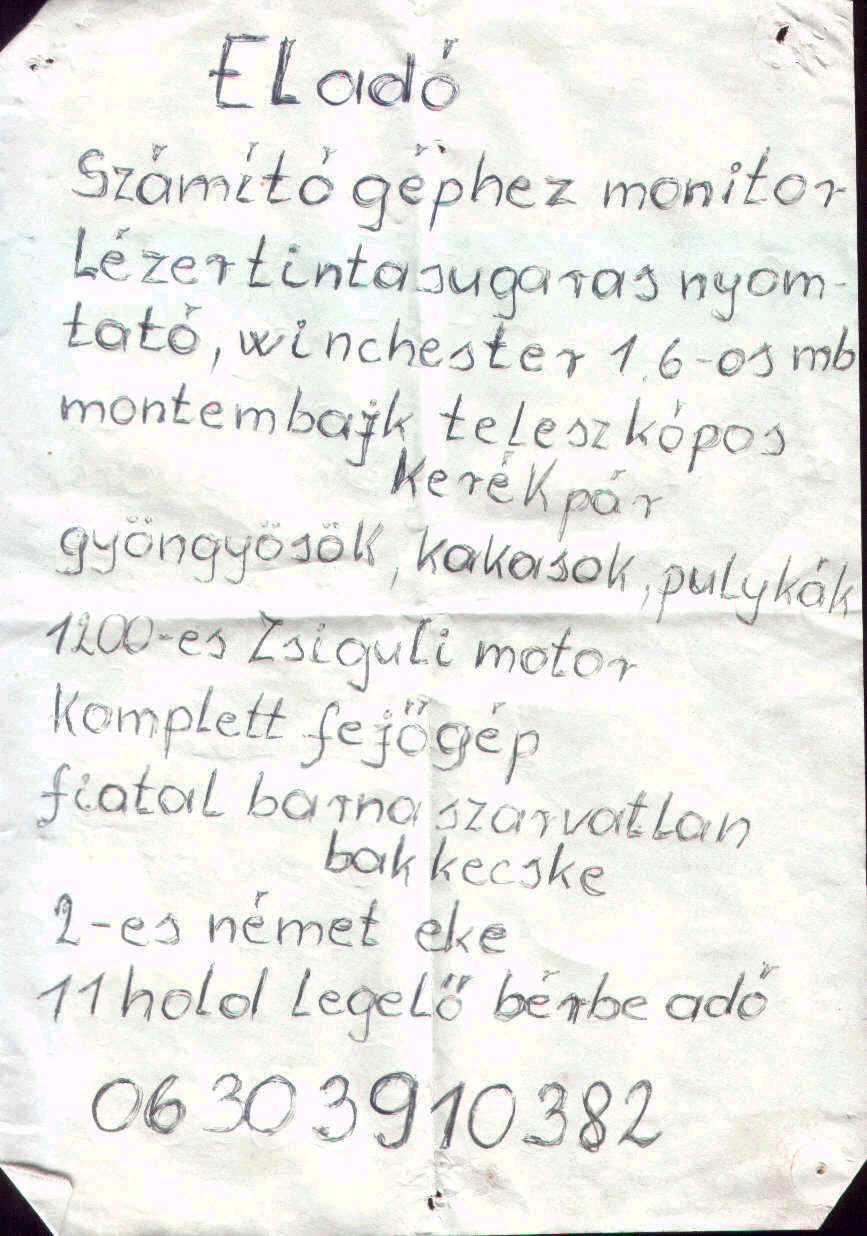 ELadó
Számító géphez monitor
Lézertintasugaras nyom-
tató, winchester 1,6-os mb
montembajk teleszkópos
kerékpár
gyöngyösök, kakasok, pulykák
1200-es Zsiguli motor
Komplett fejőgép
fiatal barna szarvatlan
bak kecske
2-es német eke
11 hold legelő bérbe adó
06 30 3910382